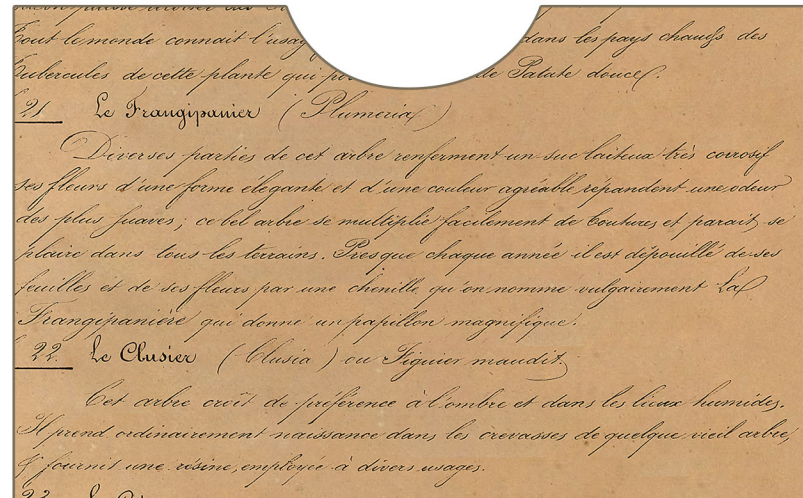 Tout le monde connait l'usag dans les pays chauds des
tubercules de cette plante qui po de Patate douce.
21 Le Frangipanier (Plumeria)
Diverses parties de cet arbre renferment un suc laiteux très corrosif
ses fleurs d'une forme élegante et d'une couleur agréable répandent une odeur
des plus suaves; ce bel arbre se multiplie facilement de boutures et parait se
plaire dans tous les terrains. Presque chaque année il est dépouillé de ses
feuilles et de ses fleurs par une chenille qu'on nomme vulgairement La
Frangipanière qui donne un papillon magnifique.
22. Le Clusier (Clusia) ou Figuier maudit
Cet arbre croît de préférence à l'ombre et dans les lieux humides.
Il prend ordinairement naissance dans les crevasses de quelque vieil arbre,
il fournit une résine, employée à divers usages.
23 Le